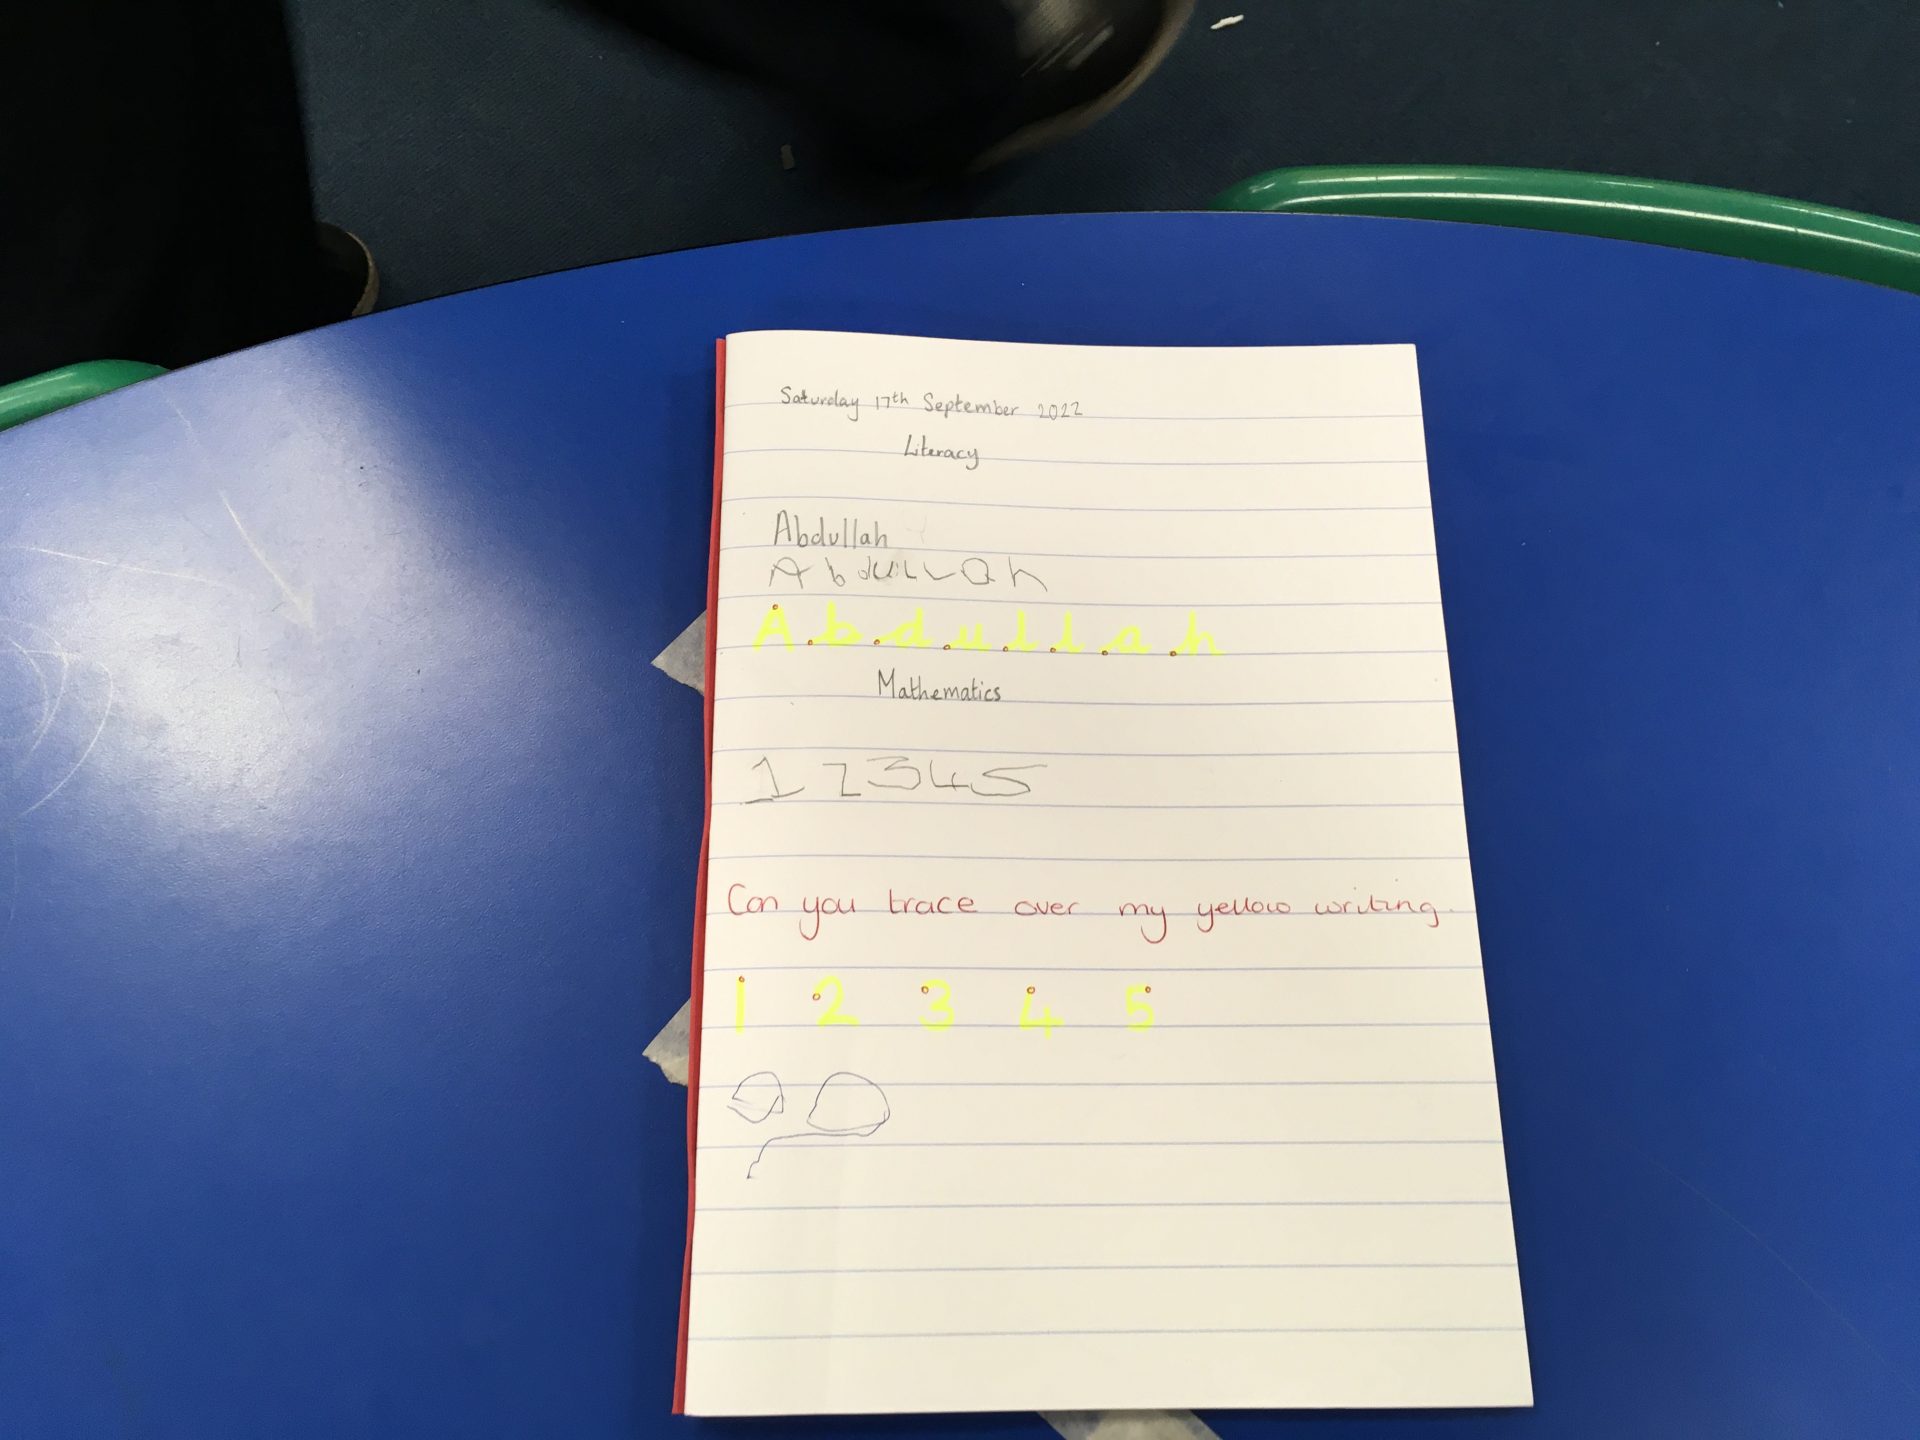 Saturday 17th September 2022
Literacy
Abdullah
Abdullah
Abdullah
Mathematics
1 2 3 4 5
Can you trace over my yellow writing.
1 2 3 4 5